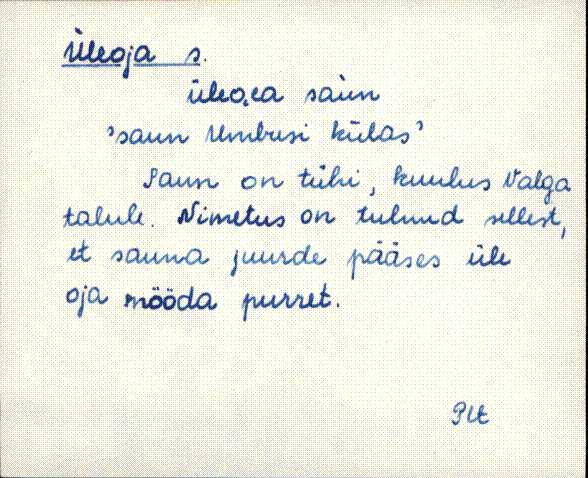 Üleoja s.
üleo,ea saùn
'saun Umbusi külas'
Saun on tühi, kuulus Valga
talule. Nimetus on tulnud sellest,
et sauna juurde pääses üle
oja mööda purret.
Plt